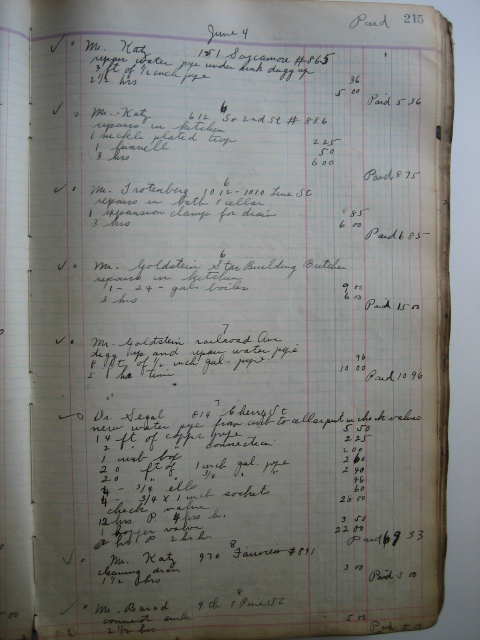 Paid 215
June 4
Mr. Katz 151 Sycamore #865
repair water pipe under sink dugg up
3 ft of 1/2 inch pipe 36
2 1/2 hrs 5 00
Paid 5 36
6
Mr. Katz 612 So 2nd St #886
repairs in kitchen
1 nickle plated trap 2 25
1 funnell 50
3 hrs 6 00
Paid 8 75
6
Mr. Trotenberg 1012-1010 Line St
repairs in bath & cellar
1 expansion clamp for drain 85
3 hrs 6 00
Paid 6 85
6
Mr. Goldstein Star Building Butcher
repairs in kitchen
1 - 24 - gal. boiler 9 00
3 hrs 6 00
Paid 15 00
7
Mr. Goldstein railroad Ave
digg up and repair water pipe
8 ft of 1/2 inch gal. pipe 96
5 hrs time 10 00
Paid 10 96
7
Dr. Segal 814 Cherry St
new water pipe from curb to cellar put in check valve
14 ft of copper pipe 5 50
2 connection 2 25
1 curb box 2 00
20 ft of 1 inch gal. pipe 2 60
20 " " 3/4 " " 2 40
4 - 3/4 ells 48
4 - 3/4 X 1 inch sockets 60
check valve
12 hrs P 4 hrs h. 28 00
1 valve 3 50
hrs P 2 hrs h. 22 00
Paid 69 33
8
Mr. Katz 970 Fairview #891
cleaning drain
1 1/2 hrs 3 00
Paid 3 00
8
Mr. Barad 9th & Pine St
connect sink
2 1/2 hrs 5 00
Paid 5 00